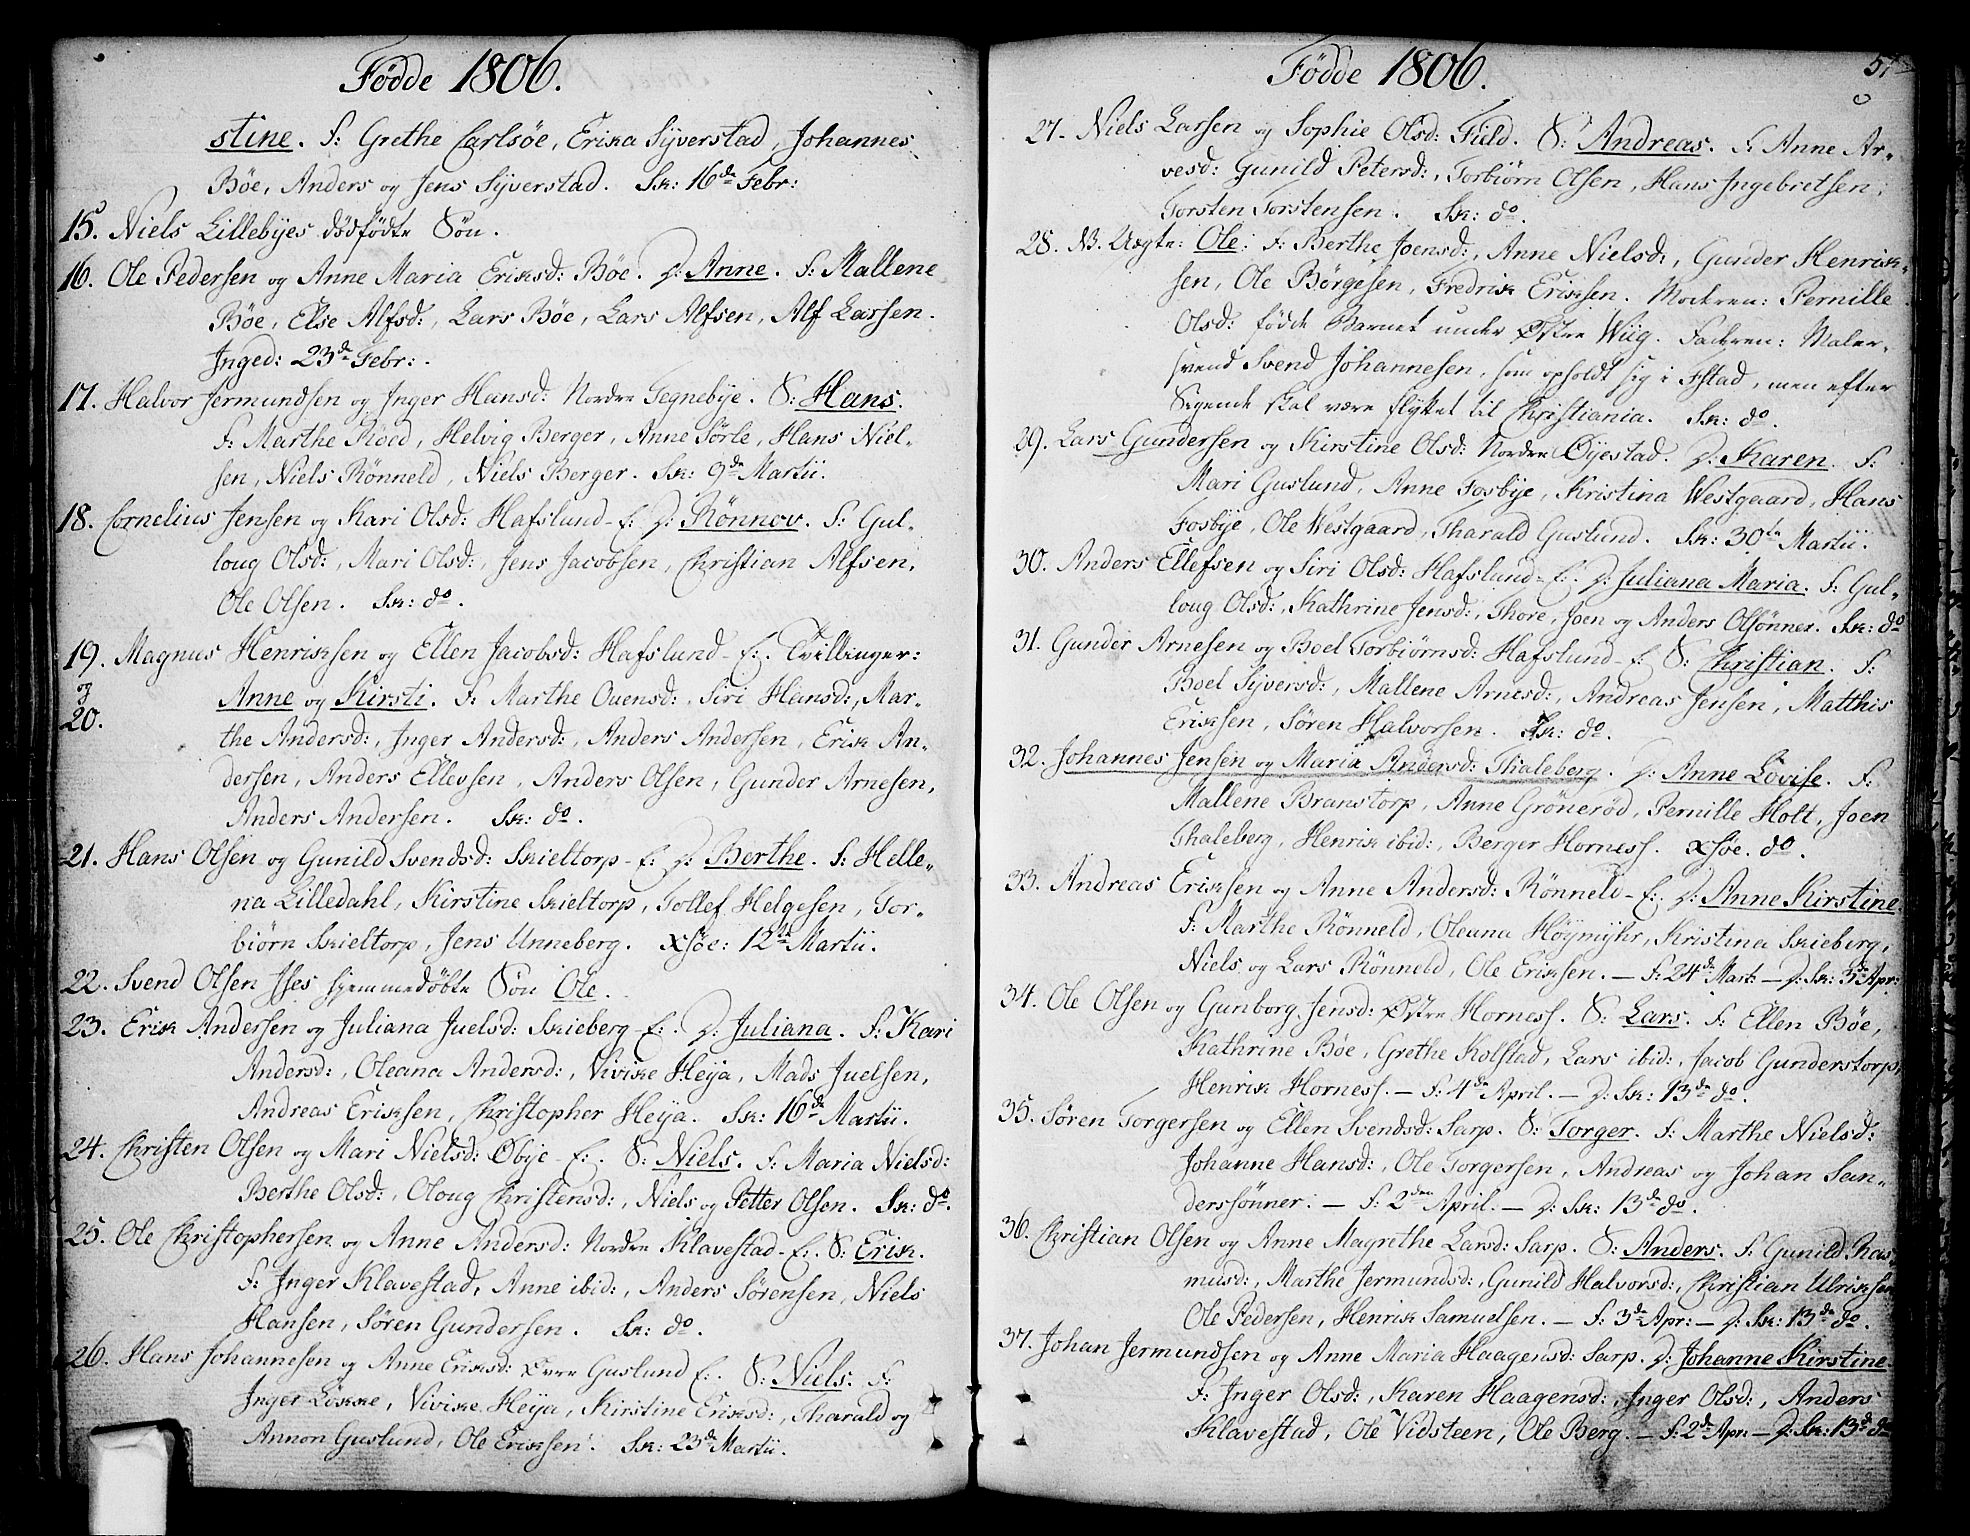 Fødde 1806.
stine. F: Grethe Carlsöe, Erika Syverstad, Johannes
Böe, Anders og Jens Syverstad. Sk: 16de Febr:
15. Niels Lillebyes dödfödte Sön.
16. Ole Pedersen og Anne Maria Eriksd: Böe. D: Anne. F: Mallene
Böe, Else Alfsd:, Lars Böe, Lars Alfsen, Alf Larsen.
Inged: 23de Febr:.
17. Halvor Jermundsen og Inger Hansd: Nordre Tegnebye. S: Hans.
F: Marthe Röed, Helvig Berger, Anne Sörle, Hans Niel-
sen, Niels Rönneld, Niels Berger. Sk: 9de Martii.
18. Cornelius Jensen og Kari Olsd: Hafslund-E: D: Rönnov. F: Gul-
loug Olsd:, Mari Olsd:, Jens Jacobsen, Christian Alfsen,
Ole Olsen. Sk: do.
19. Magnus Henriksen og Ellen Jacobsd: Hafslund-E:. Tvillinger:
og Anne og Kirsti. F: Marthe Ouensd:, Siri Hansd:, Mar-
20. the Andersd:, Inger Andersd:, Anders Andersen, Erik An-
dersen, Anders Ellevsen, Anders Olsen, Gunder Arnesen,
Anders Andersen. Sk: do.
21. Hans Olsen og Gunild Svendsd: Skieltorp-E: D: Berthe. F: Helle-
na Lilledahl, Kirstine Skieltorp, Tollef Helgesen, Tor-
biörn Skieltorp, Jens Unneberg. xsöe: 12te Martii.
22. Svend Olsen Ises hjemmedöbte Sön Ole.
23. Erik Andersen og Juliana Juelsd: Skieberg-E:. D: Juliana. F: Kari
Andersd:, Oleana Andersd:, Vivike Heija, Mads Juelsen,
Andreas Eriksen, Christopher Heija. Sk: 16de Martii.
24. Christen Olsen og Mari Nielsd: Öbye-E:. S: Niels. F: Maria Nielsd:
Berthe Olsd:, Oloug Christensd:, Niels og Petter Olsen. Sk: do.
25. Ole Christophersen og Anne Andersd: Nordre Klavestad-E:. S: Erik.
F: Inger Klavestad, Anne ibid:, Anders Sörensen, Niels
Hansen, Sören Gundersen. Sk: do.
26. Hans Johannesen og Anne Eriksd: Övre Guslund E:. S: Niels. F:
Inger Lökke, Vivike Heija, Kirstine Eriksd:, Tharald og
Annon Guslund, Ole Eriksen. Sk: 23de Martii.
Födde 1806.
27. Niels Larsen og Sophie Olsd: Fuld. S: Andreas. F: Anne Ar-
vesd: Gunild Petersd:, Torbiörn Olsen, Hans Ingebretsen,
Torsten Torstensen. Sk: do.
28. NB. Uægte: Ole. F: Berthe Joensd:, Anne Nielsd:, Gunder Henrik-
sen, Ole Börgesen, Fredrik Eriksen. Modren: Pernille
Olsd: födde Barnet under Östre Wiig. Fadren: Maler-
svend Svend Johannesen, som opholdt sig i Fstad, men efter
Sigende skal være flyttet til Christiania. Sk: do.
29. Lars Gundersen og Kirstine Olsd: Nordre Öyestad. D: Karen. F:
Mari Guslund, Anne Fosbye, Kristina Westgaard, Hans
Fosbye, Ole Westgaard, Tharald Guslund. Sk: 30te Martii.
30. Anders Ellefsen og Siri Olsd: Hafslund-E:. D: Juliana Maria. F: Gul-
loug Olsd:, Kathrine Jensd:, Thore, Joen og Anders Olsönner. Sk: do
31. Gunder Arnesen og Boel Torbiörnsd: Hafslund-E: S: Christian. F:
Boel Syversd:, Mallene Arnesd:, Andreas Jensen, Matthis
Eriksen, Sören Halvorsen. Sk: do.
32. Johannes Jensen og Maria Andersd: Thaleberg. D: Anne Lovise. F:
Mallene Branstorp, Anne Grönerød, Pernille Holt, Joen
Thaleberg, Henrik ibid:, Berger Horness. xsöe. do.
33. Andreas Eriksen og Anne Andersd: Rönneld-E:. D: Anne Kirstine.
F: Marthe Rönneld, Oleana Höymyhr, Kristina Skieberg,
Niels og Lars Rönneld, Ole Eriksen. — F: 24de Mart: — D: Sk: 3de Apr:
34. Ole Olsen og Gunborg Jensd: Östre Horness. S: Lars. F: Ellen Böe,
Kathrine Böe, Grethe Kolstad, Lars ibid:, Jacob Gunderstorp,
Henrik Horness. — F: 4de April. — D: Sk: 13de do.
35. Sören Torgersen og Ellen Svendsd: Sarp. S: Torger. F: Marthe Nielsd:
Johanne Hansd:, Ole Torgersen, Andreas og Johan San-
dersönner. — F: 2den April. — D: Sk: 13de do.
36. Christian Olsen og Anne Magrethe Larsd: Sarp. S: Anders. F: Gunild Ras-
musd:, Marthe Jermundsd:, Gunild Halvorsd:, Christian Ulriksen
Ole Pedersen, Henrik Samuelsen. — F: 3de Apr: — D: Sk: 13de do.
37. Johan Jermundsen og Anne Maria Haagensd: Sarp. D: Johanne Kirstine.
F: Inger Olsd:, Karen Haagensd:, Inger Olsd:, Anders
Klavestad, Ole Vidsteen, Ole Berg. — F: 2de Apr: — D: Sk: 13de do